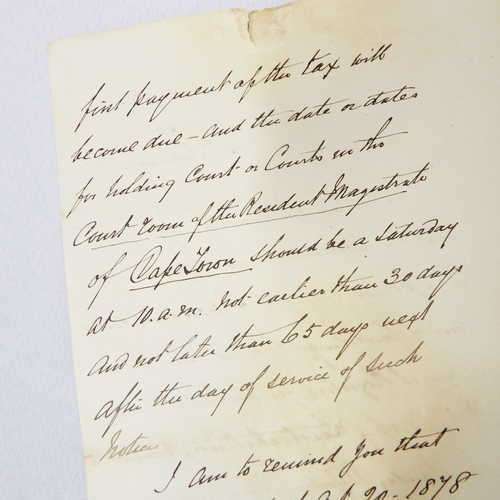 first payment of the tax will
become due - and the date or dates
for holding Court or Courts in the
Court room of the Resident Magistrate
of Cape Town should be a Saturday
at 10.a.m. not earlier than 30 days
and not later than 65 days next
after the day of service of such
Notice
I am to remind you that
20 - 1878